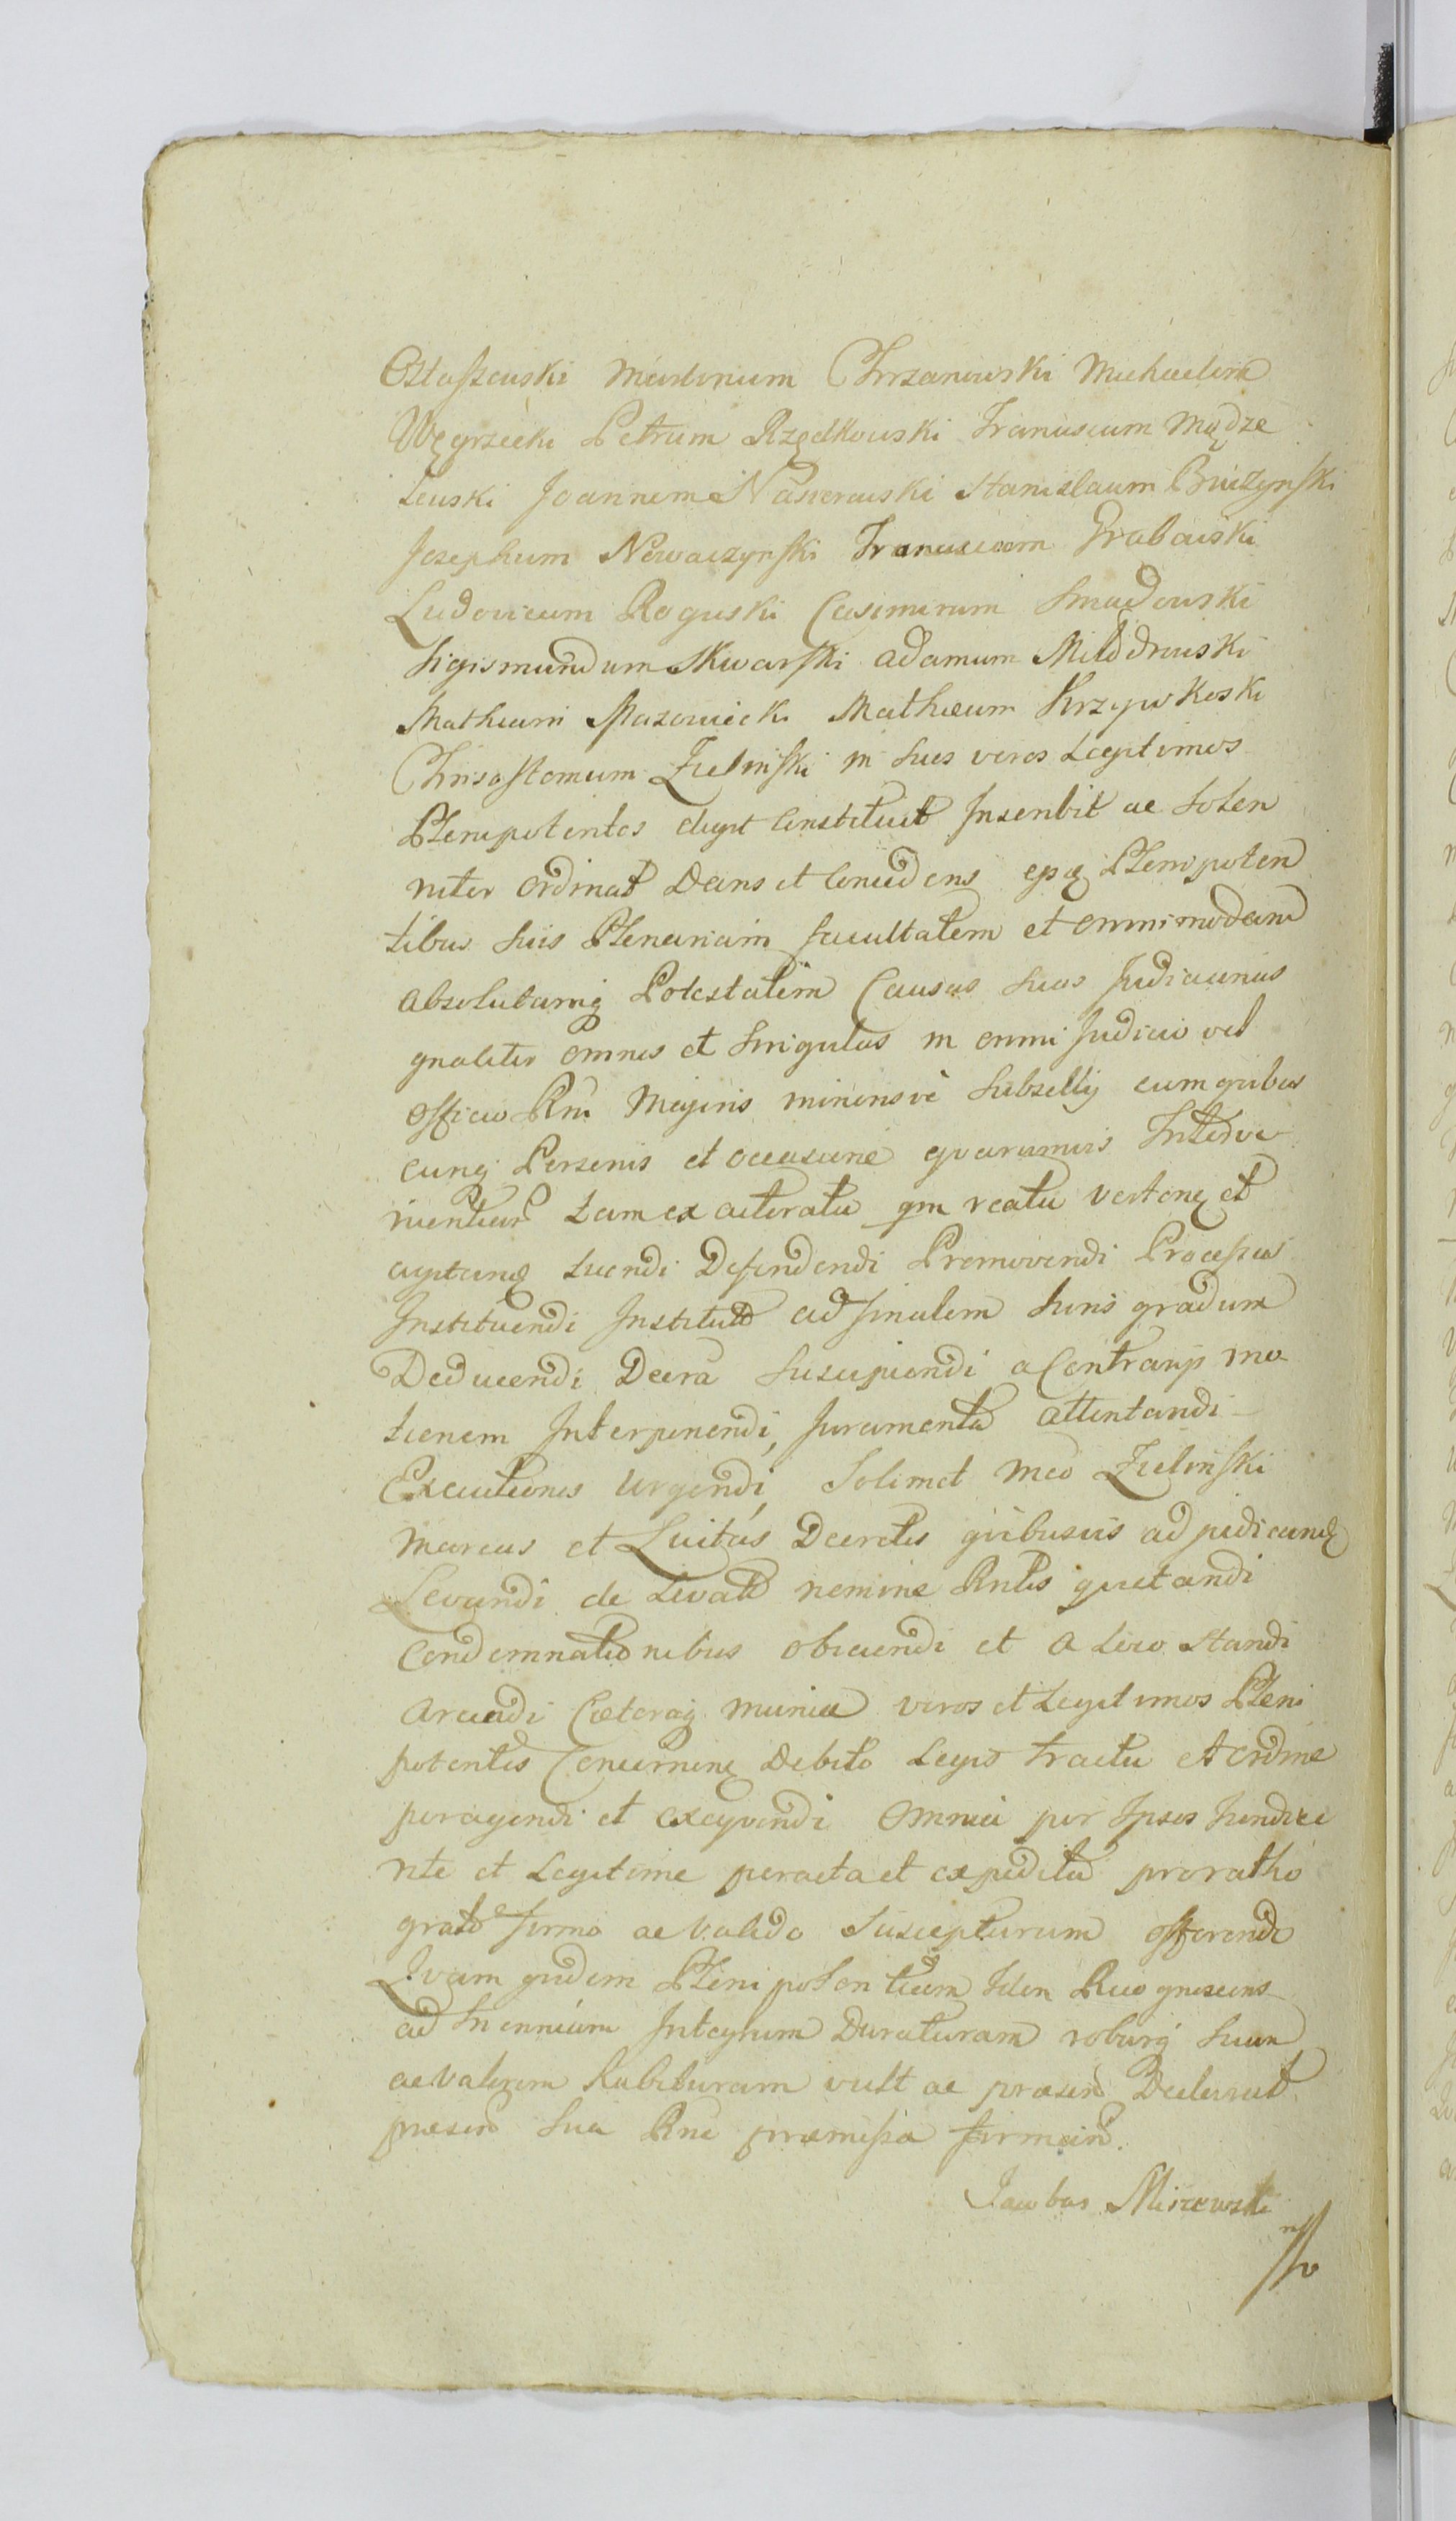 Ostaszewski Martinum Chrzanowski Michaelem
Węgrzecki Petrum Rzędkowski Franciscum Mądze
lewski Joannem Nasierowski Stanislaum Bruszynski
Josephum Nowaczynski Franciscum Grabowski
Ludovicum Roguski Casimirum Smądowski
Sigismundum Skwarski Adamum Milodrowski
Mathiam Mazowiecki Mathæum Krzywkoski
Chrisostomum Zielinski in suos veros Legitimos
Plenipotentes eligit Constituit Inscribit ac Solen
niter ordinat Dans et Concedens ejsq Plenipoten
tibus suis Plenariam facultatem et omnimodam
absolutamq Potestatem Causas suas Judiciarias
gnaliter omnes et Singulas in omni Judicio vel
officio Rni Majoris minorisve Subselly cum quibus
cunq Personis et occasione quarumvis Interve
nientium tam ex actoratu qm reatu verten et
agitan tuendi Defendendi Promovendi Processus
Instituendi Institut ad finalem Juris gradum
Deducendi Decra Suscipiendi a Contrarijs mo
tionem Interponendi, Juramenta attentandi
Executiones urgendi, Solimet Mco Zielinski
Marcas et Luitas Decretis quibusvis adjudican
Levandi de Levatis nomine Rntis quietandi
Condemnationibus obiiciendi et a Loco Standi
arcendi Cæteraq munia veros et Legitimos Pleni
potentes Concernen Debito Legis tractu et ordine
peragendi et exequendi omnia per Ipsos Juridice
rite et Legitime peracta et expedita pro ratho
grato firmo ac valido Suscepturum offerendo
Quam quidem Plenipotentiam Iden Recognoscens
ad Triennium Integrum Duraturam roburq Suum
ac valorem habituram vult ac præsen Declarat
præsen Sua Rne præmissa firman.
Jacobus Miszewski
mp